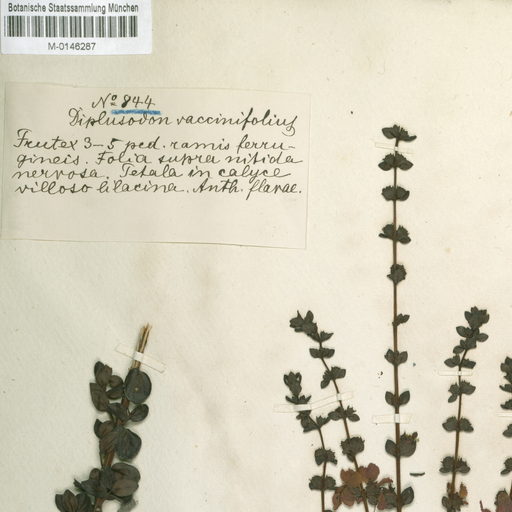 Botanische Staatssammlung München
M-0146287
No 844
Diplusodon vaccinifolius
Frutex 3-5 ped. ramis ferru-
gineis. Folia supra nitida
nervosa. Petala in calyce
villoso lilacina. Anth. flavae.